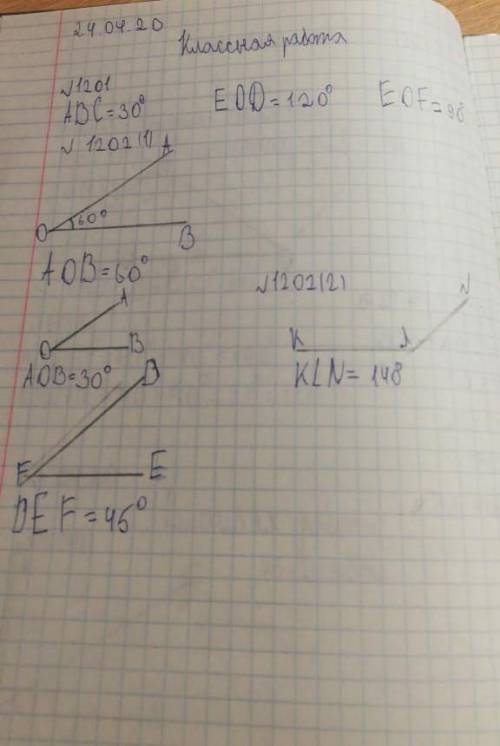 24.04.20
Классная работа
№1201
ABC=30° EOD=120° EOF=98
№ 1202(1)
A
O 60° B
AOB=60°
№1202(2)
A
O B
AOB=30°
N
K Л
KLN=148
D
E E
DEF=45°